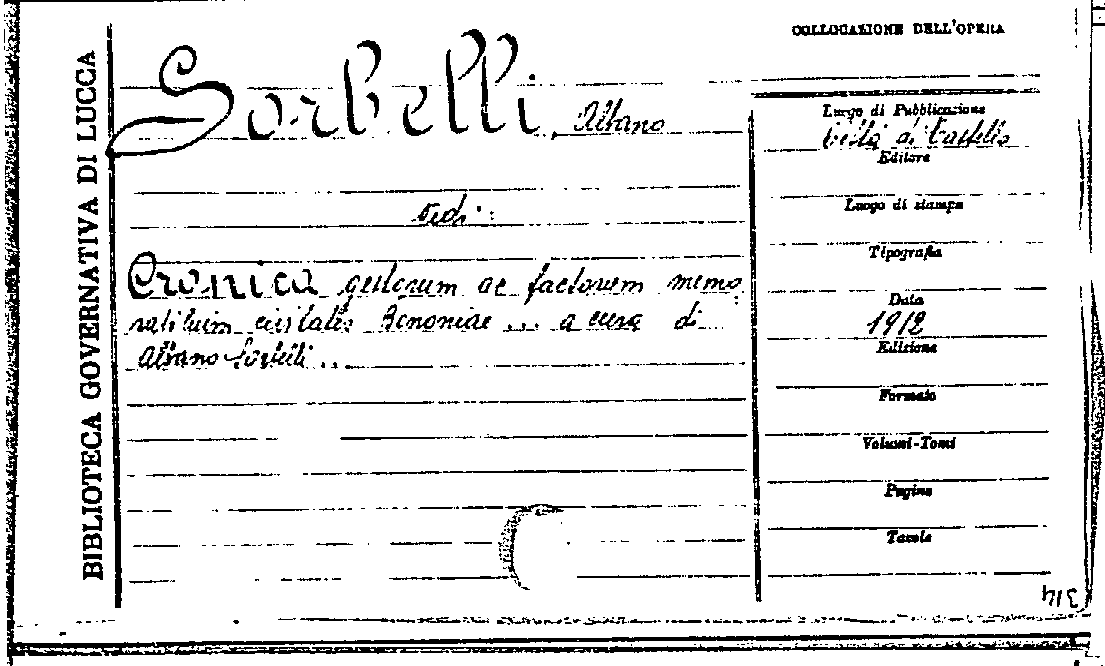 BIBLIOTECA GOVERNATIVA DI LUCCA
COLLOCAZIONE DELL'OPERA
Sorbelli, Albano
vedi:
Cronica gestorum ac factorum memo
rabilium civitatis Bononiae ... a cura di
Albano Sorbelli ..
Luogo di Pubblicazione
Città di Castello
Editore
Luogo di stampa
Tipografia
Data
1912
Edizione
Formato
Volumi-Tomi
Pagine
Tavole
314